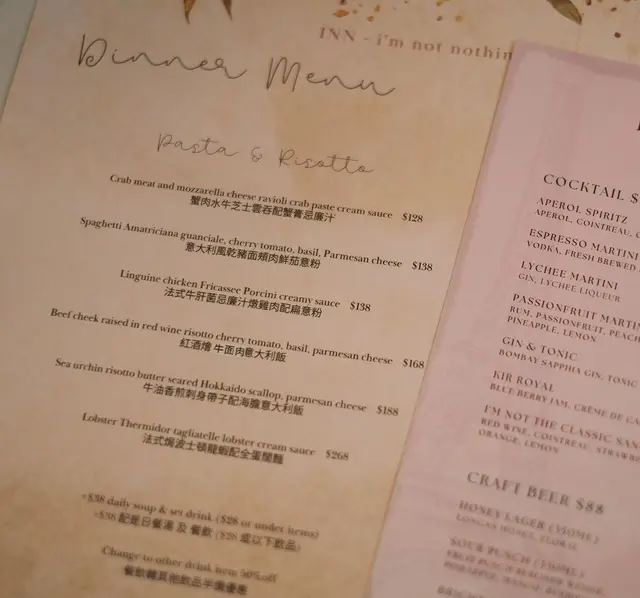 INN - i'm not nothin
Dinner Menu
Pasta & Risotto
Crab meat and mozzarella cheese ravioli crab paste cream sauce $128
蟹肉水牛芝士雲吞配蟹膏忌廉汁
Spaghetti Amatriciana guanciale, cherry tomato, basil, Parmesan cheese $138
意大利風乾豬面頰肉鮮茄意粉
Linguine chicken Fricassee Porcini creamy sauce $138
法式牛肝菌忌廉汁燉雞肉配扁意粉
Beef cheek raised in red wine risotto cherry tomato, basil, parmesan cheese $168
紅酒燴 牛面肉意大利飯
Sea urchin risotto butter seared Hokkaido scallop, parmesan cheese $188
牛油香煎刺身帶子配海膽意大利飯
Lobster Thermidor tagliatelle lobster cream sauce $268
法式焗波士頓龍蝦配全蛋闊麵
+$38 daily soup & set drink ($28 or under items)
+$38 配是日餐湯 及 餐飲 ($28 或以下飲品)
Change to other drink item 50% off
餐飲轉其他飲品半價優惠
COCKTAIL $
APEROL SPIRITZ
APEROL, COINTREAU,
ESPRESSO MARTINI
VODKA, FRESH BREWED
LYCHEE MARTINI
GIN, LYCHEE LIQUEUR
PASSIONFRUIT MARTIN
RUM, PASSIONFRUIT, PEACH
PINEAPPLE, LEMON
GIN & TONIC
BOMBAY SAPPIHA GIN, TONIC
KIR ROYAL
BLUE BERRY JAM, CRÈME DE CA
I'M NOT THE CLASSIC SAN
RED WINE, COINTREAU, STRAWB
ORANGE, LEMON
CRAFT BEER $88
HONEY LAGER (330ML)
LONGAN HONEY, FLORAL
SOUR PUNCH (330ML)
FRUIT PUNCH BERLINER WEISSE,